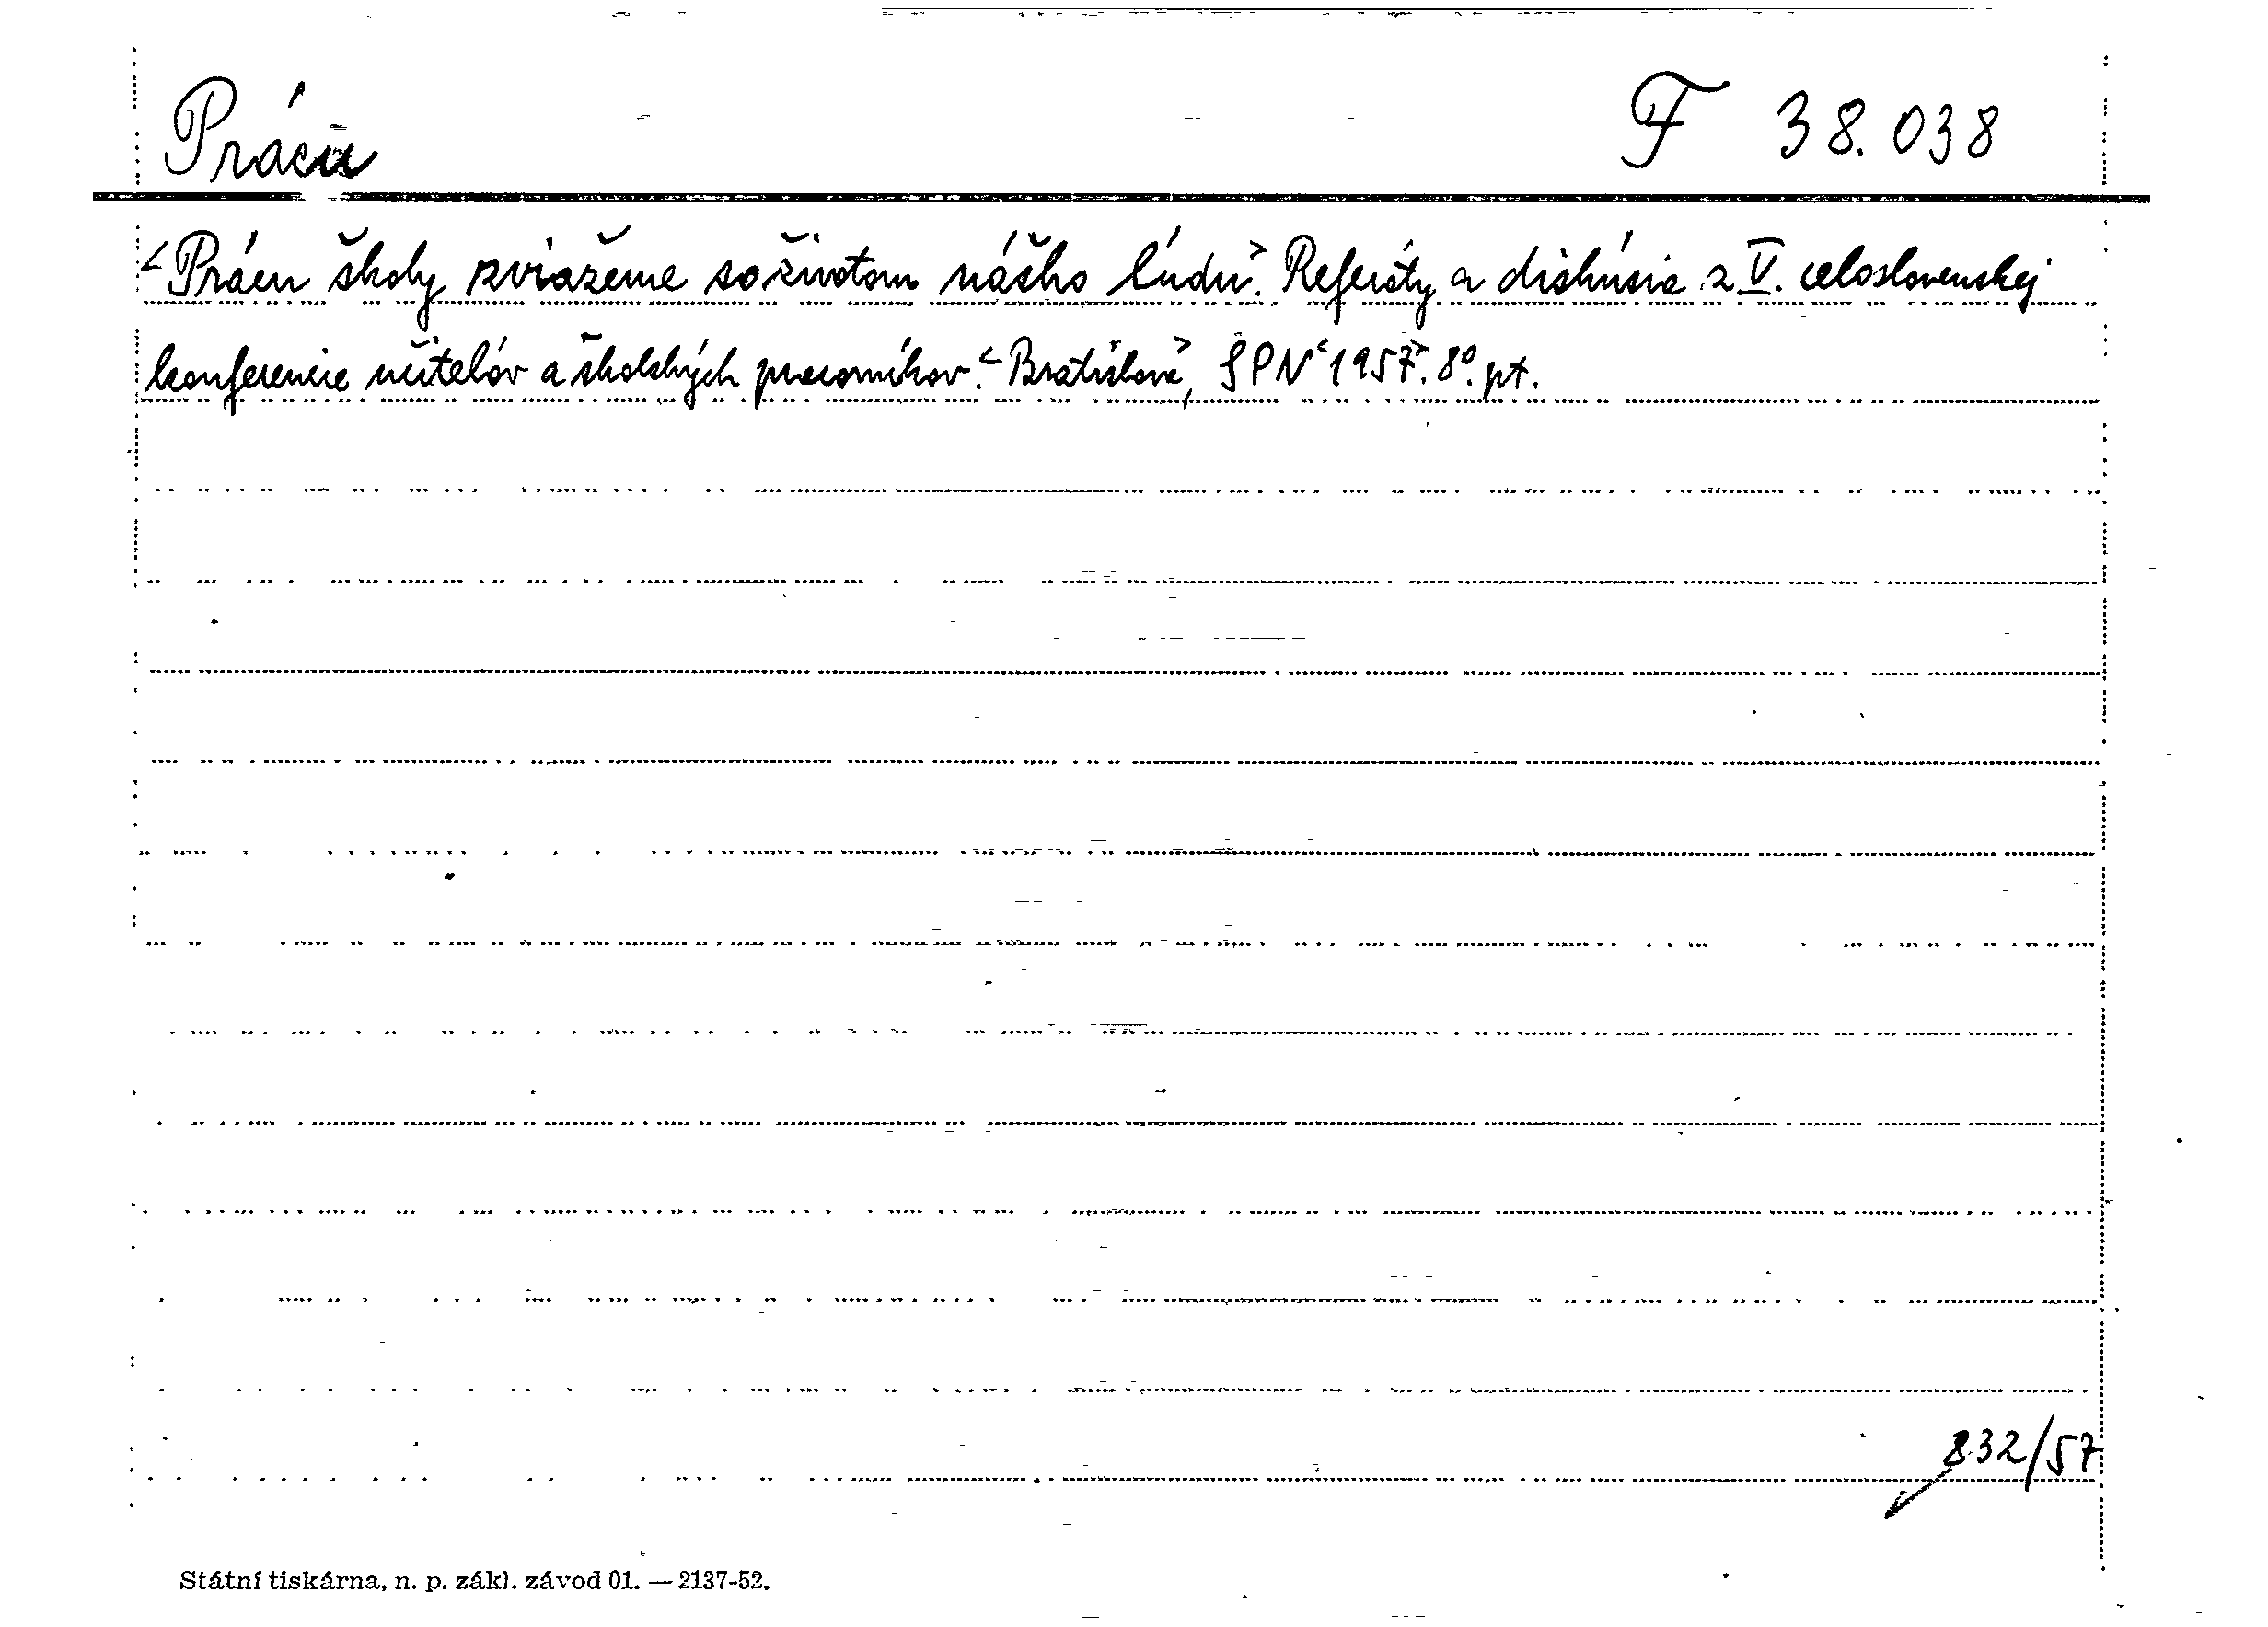 Prácu F 38.038
<Prácu školy zviažeme so životom nášho ľudu>. Referáty a diskúsia z V. celoslovenskej
konferencie učitelóv a školských pracovníkov. <Bratislava>, SPN <1957>. 8°. pt.
832/57
Státní tiskárna, n. p. zákl. závod 01. — 2137-52.